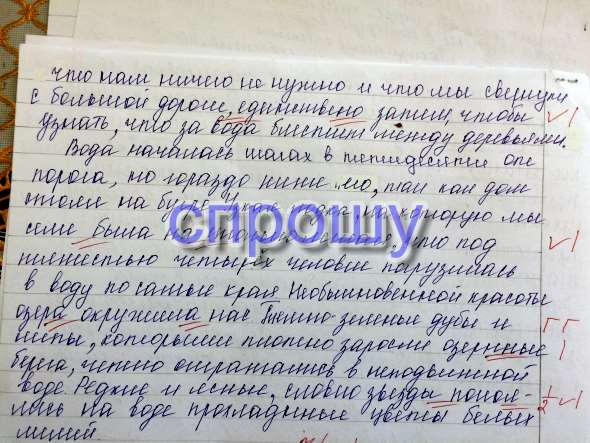 что нам ничего не нужно и что мы свернули
с большой дороги, единствено затем, чтобы
узнать, что за вода блестит между деревьями.
Вода началась шагах в пятидесяти от
порога, но гораздо ниже его, так как дом
стоял на
лодка, на которую мы
сели была на столько, что под
тяжестью четырех человек погрузилась
в воду по самые края. Необыкновенной красоты
озера окружила нас. Темно-зеленые дубы и
липы, которыми плотно заросли озерные
берега, четко отражались в неподвижной
воде. Редкие и ясные, словно звезды покоя-
лись на воде прохладные цветы белых
лилий.
спрошу